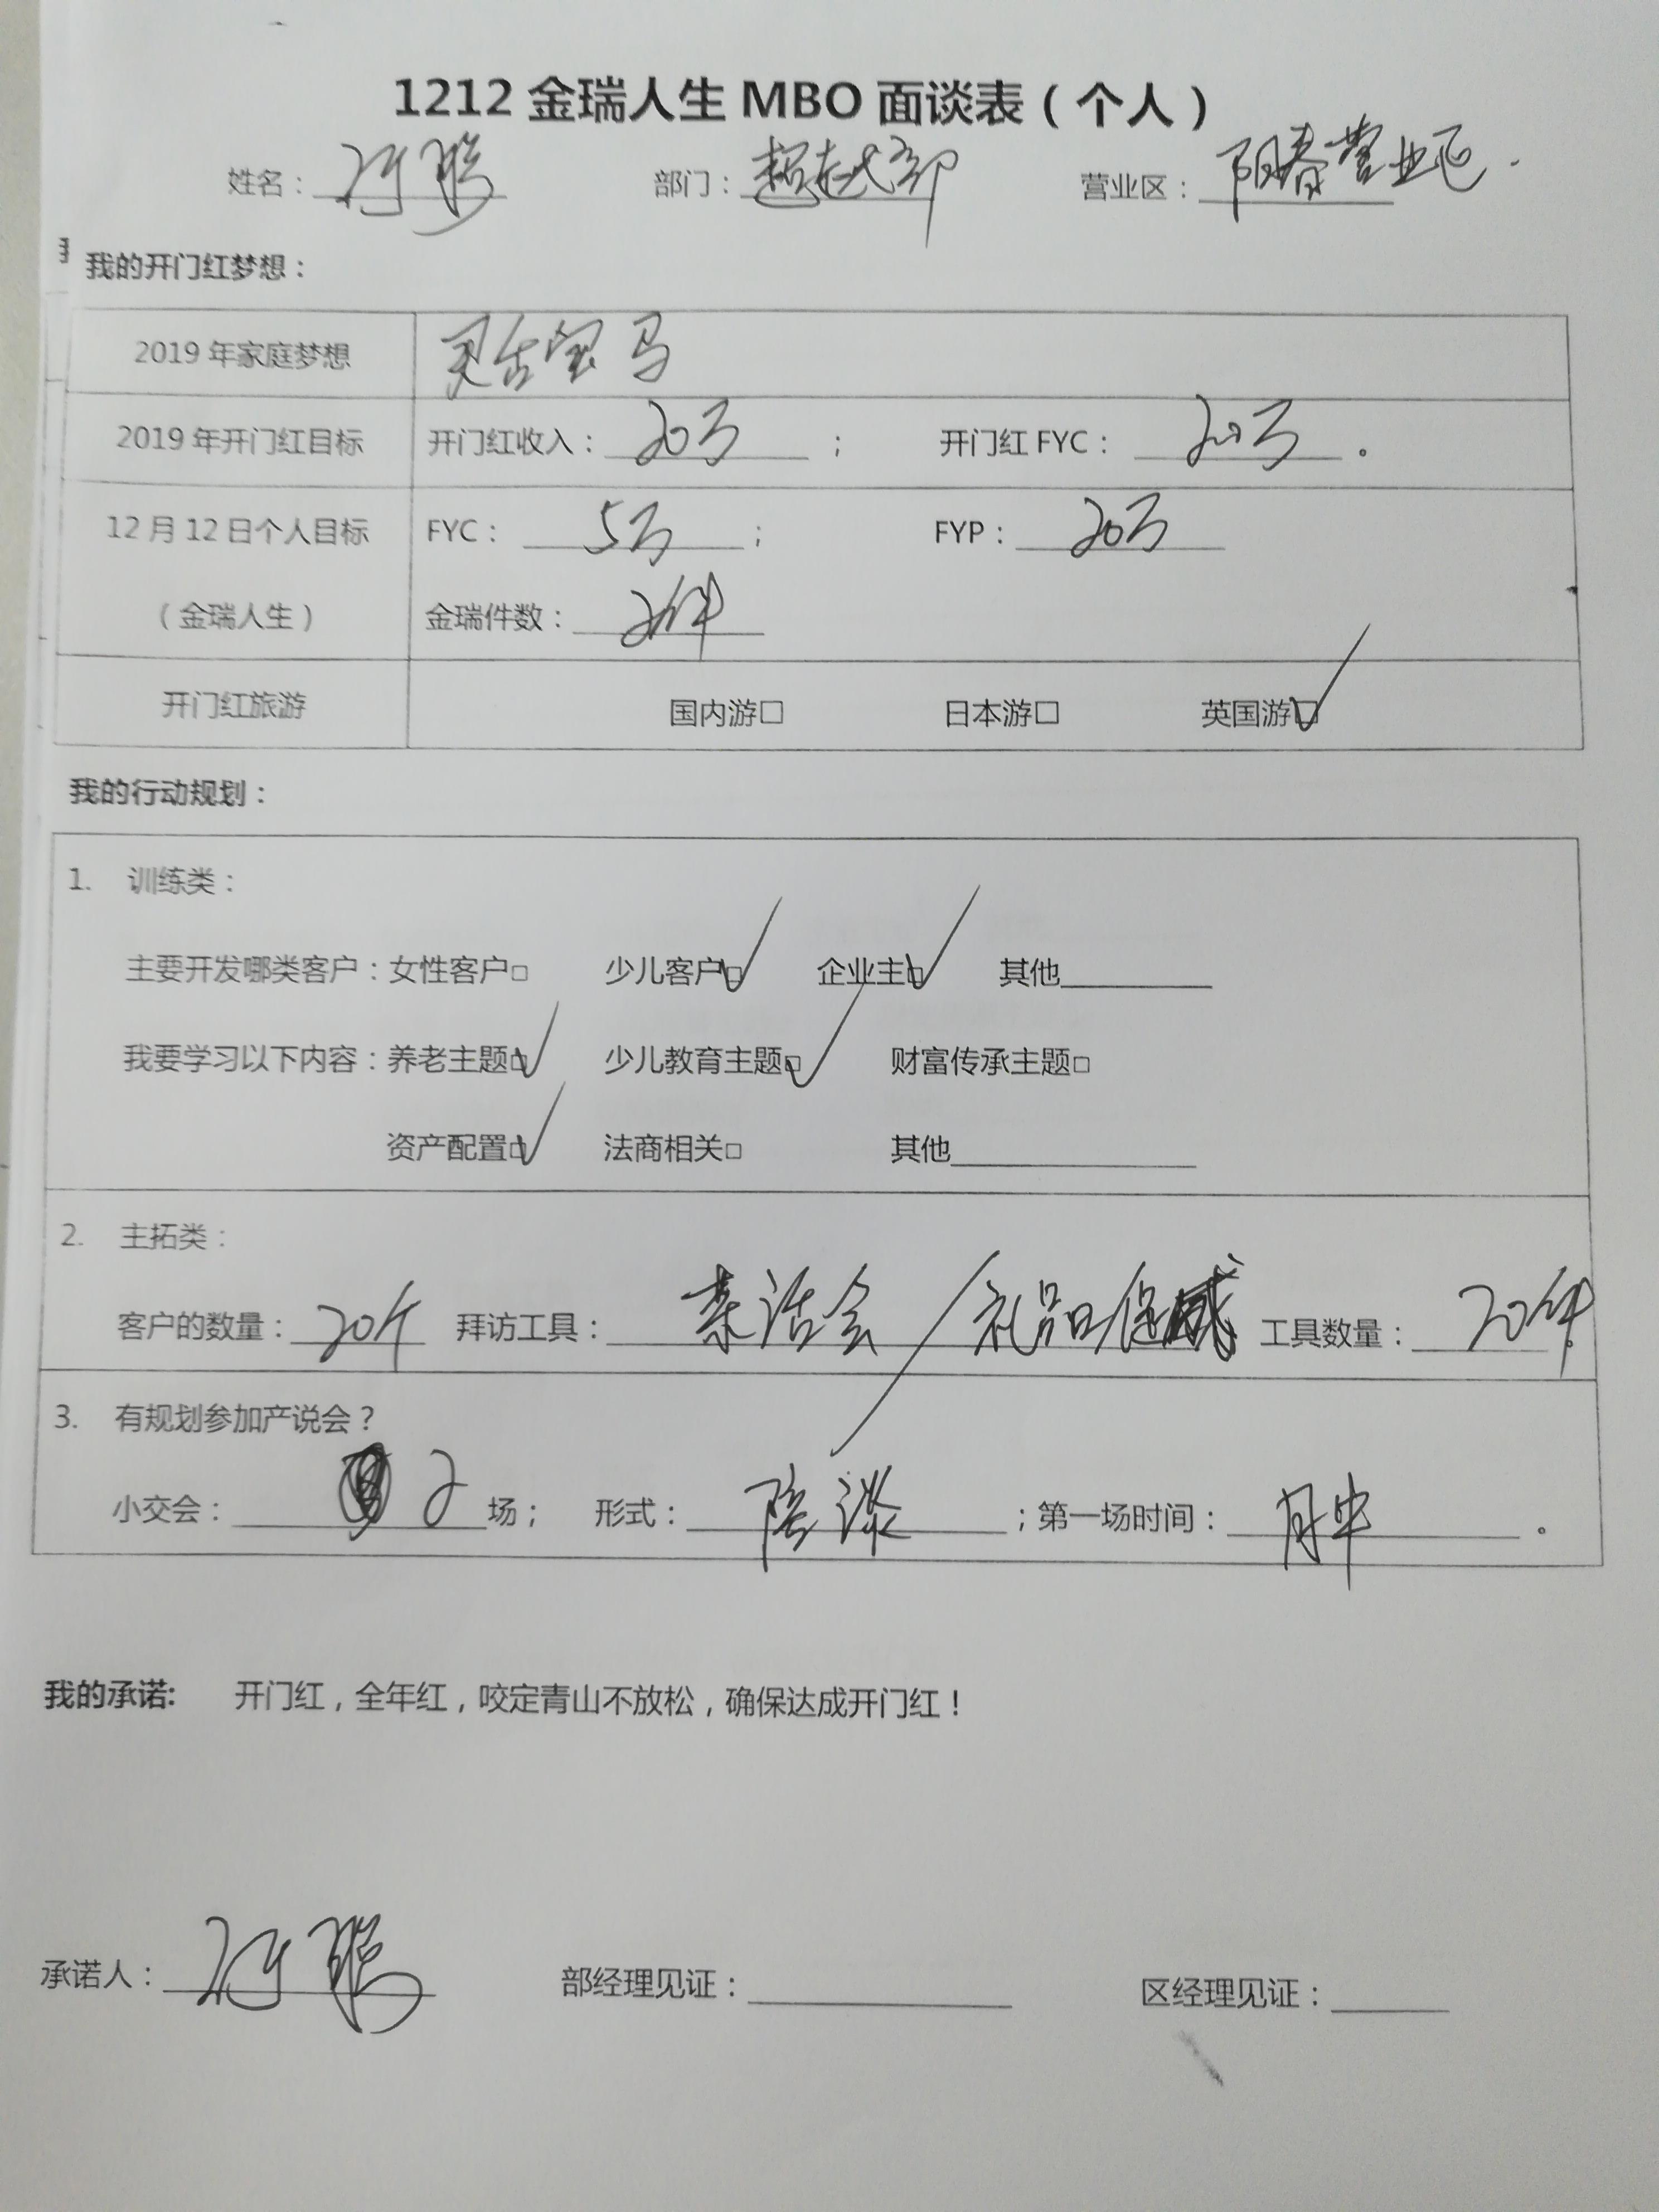 1212 金瑞人生 MBO 面谈表（个人）
姓名：何聪 部门：超越部 营业区：阳春营业区.
我的开门红梦想：
2019 年家庭梦想 宝马
2019 年开门红目标 开门红收入：20万； 开门红 FYC：20万。
12 月 12 日个人目标 FYC：5万； FYP：20万
（金瑞人生） 金瑞件数：2件
开门红旅游 国内游□ 日本游□ 英国游□✓
我的行动规划：
1. 训练类：
主要开发哪类客户：女性客户□ 少儿客户□✓ 企业主□✓ 其他
我要学习以下内容：养老主题□✓ 少儿教育主题□✓ 财富传承主题□
资产配置□✓ 法商相关□ 其他
2. 主拓类：
客户的数量：20个 拜访工具：话会/礼品 工具数量：20件。
3. 有规划参加产说会？
小交会：2场； 形式：陪谈；第一场时间：月中。
我的承诺: 开门红，全年红，咬定青山不放松，确保达成开门红！
承诺人：何聪 部经理见证： 区经理见证：